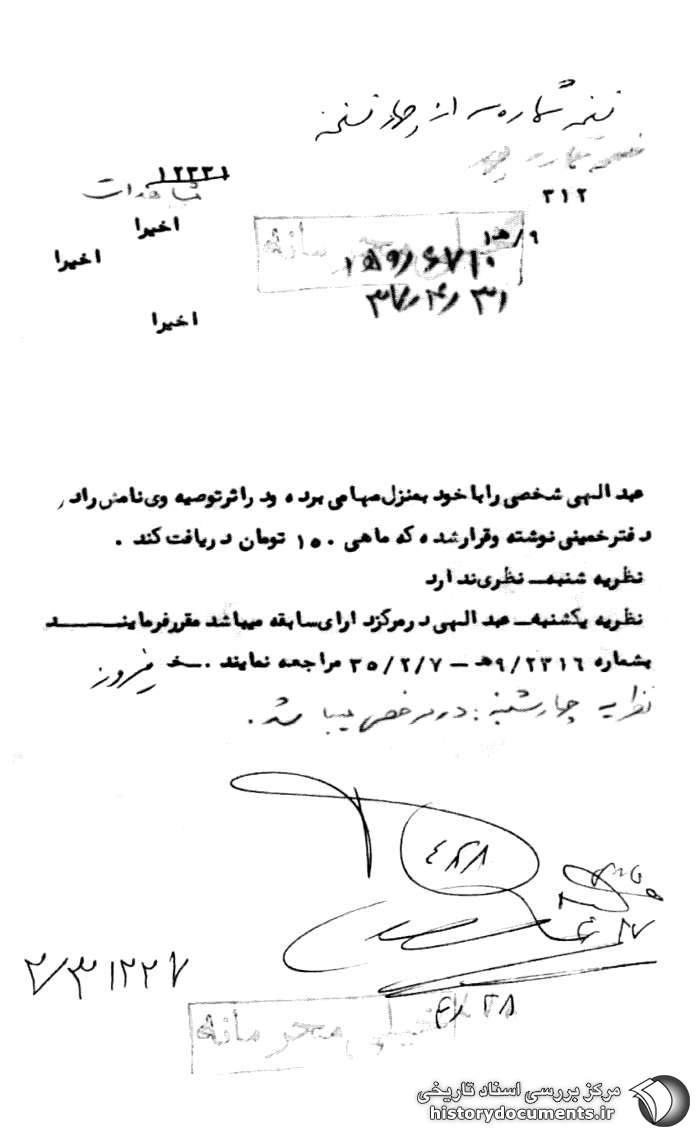 نسخه شماره سه از چهار نسخه
۳۱۲
۱۲۳۳۱
مشاهدات
اخیرا
۹/ﻫ۱
اخیرا
خیلی محرمانه
۳۷/۴/۳۱
اخیرا
عبدالهی شخصی را با خود بمنزل مهامی برده و در اثر توصیه وی نامش را در
دفتر خمینی نوشته و قرار شده که ماهی ۱۵۰ تومان دریافت کند .
نظریه شنبه ـ نظری ندارد
نظریه یکشنبه ـ عبدالهی در مرکز دارای سابقه میباشد مقرر فرمایند
بشماره ۹/۲۳۱۶ﻫ ـ ۳۵/۲/۷ مراجعه نمایند .
نظریه چهارشنبه : در مرخصی میباشد .
۴۸۸
۳۱۲۲۷
خیلی محرمانه
مرکز بررسی اسناد تاریخی
historydocuments.ir